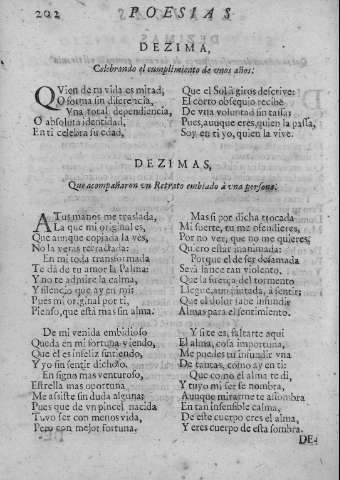 202 POESIAS
DEZIMA,
Celebrando el cumplimiento de vnos años:
QVien de tu vida es mitad,
O forma sin diferencia,
Vna total dependiencia,
O absoluta identidad,
En ti celebra su edad,
Que el Sol à giros descrive:
El corto obsequio recibe
De vna voluntad sin tassa;
Pues, aunque eres, quien la passa,
Soy, en ti yo, quien la vive.
DEZIMAS,
Que acompañaron vn Retrato embiado à vna persona.
ATus manos me traslada,
La que mi original es,
Que aunque copiada la ves,
No la veràs retractada:
En mi toda transformada
Te dà de tu amor la Palma:
Y no te admire la calma,
Y silencio que ay en mi:
Pues mi original por ti,
Pienso, que està mas sin alma.
De mi venida embidioso
Queda en mi fortuna viendo,
Que el es infeliz sintiendo,
Y yo sin sentir dichoso.
En signo mas venturoso,
Estrella mas oportuna,
Me assiste sin duda alguna:
Pues que de vn pincel nacida
Tuvo ser con menos vida,
Pero con mejor fortuna.
Mas si por dicha trocada
Mi suerte, tu me ofendieres,
Por no ver, que no me quieres,
Quiero estar inanimada:
Porque el de ser desamada
Serà lance tan violento,
Que la fuerça del tormento
Llegue, aun pintada, à sentir:
Que el dolor sabe infundir
Almas para el sentimiento.
Y si te es, faltarte aqui
El alma, cosa importuna,
Me puedes tu infundir vna
De tantas, como ay en ti:
Que como el alma te di,
Y tuyo mi ser se nombra,
Aunque mirarme te assombra
En tan insensible calma,
De este cuerpo eres el alma,
Y eres cuerpo de esta sombra.
DE-